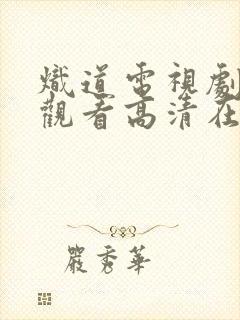 熾道電視劇
觀看高清在
嚴秀華